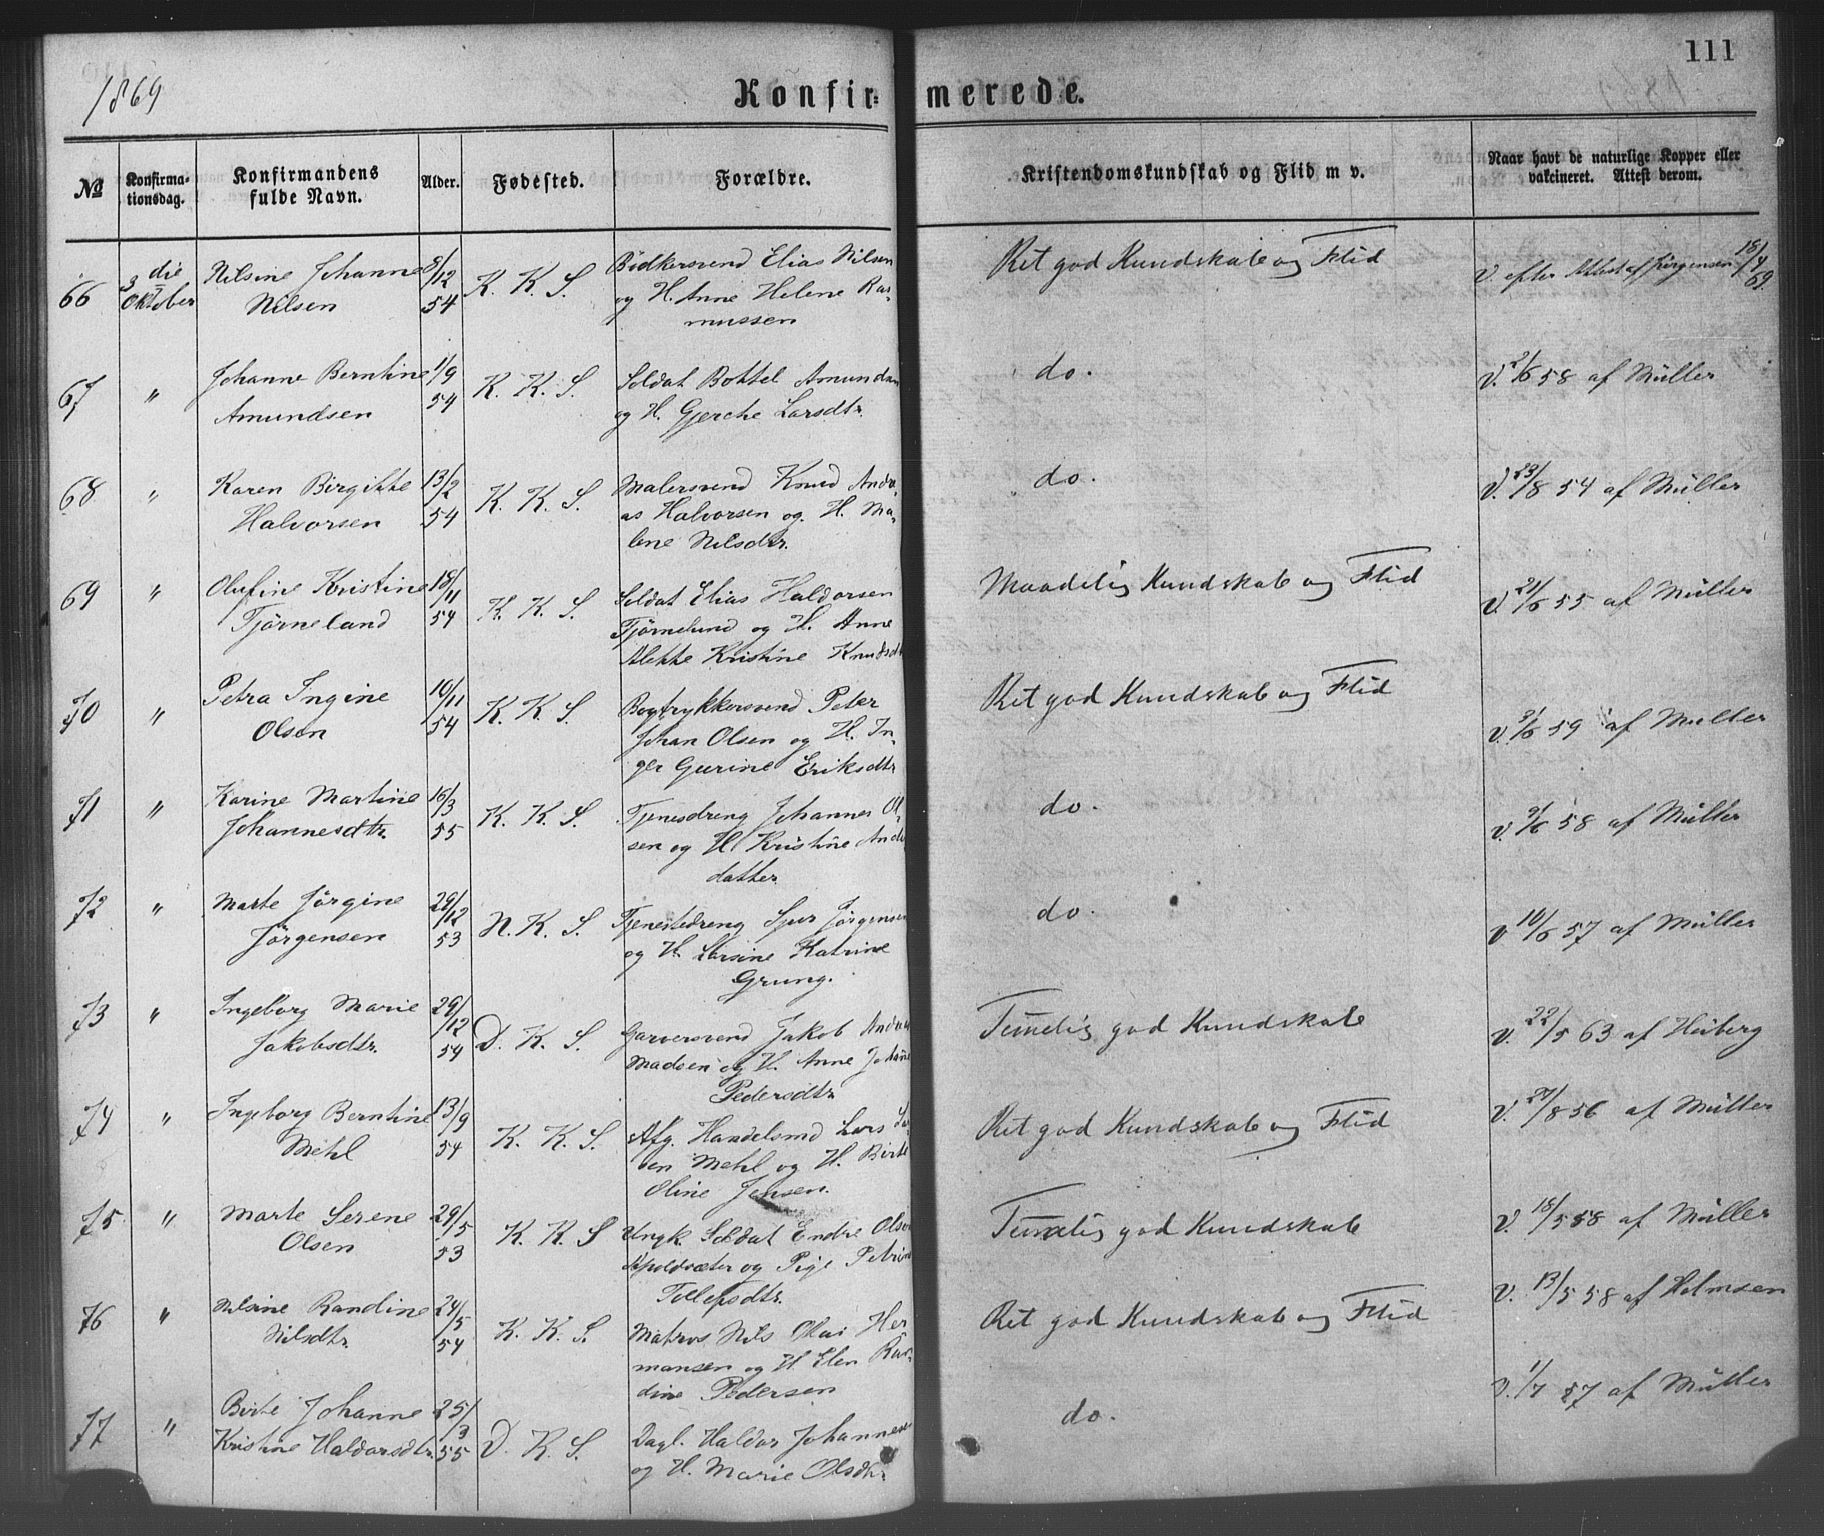 1869
Konfir=
merede.
111
No
Konfirma-
tionsdag.
Konfirmandens
fulde Navn.
Alder.
Fødested.
Forældre.
Kristendomskundskab og Flid m v.
Naar havt de naturlige Kopper eller
vakcineret. Attest derom.
66
3die
Oktober
Nilsine Johanne
Nilsen
8/12
54
K. K. S.
Bødkersvend Elias Nilsen
og H. Anne Helene Ras-
mussen
Ret god Kundskab og Flid
V. efter Attest af Jørgensen 18/4 69.
67
"
Johanne Berntine
Amundsen
1/9
54
K. K. S.
Soldat Bottel Amundsen
og H. Gjerche Larsdtr.
do.
V. 2/6 58 af Müller
68
"
Karen Birgitte
Halvorsen
13/2
54
K. K. S.
Malersvend Knud Andre-
as Halvorsen og H. Ma-
lene Nilsdtr.
do.
V. 23/8 54 af Müller
69
"
Olufine Kristine
Tjørneland
18/11
54
K. K. S.
Soldat Elias Haldorsen
Tjørnelund og H. Anne
Alette Kristine Knudsdtr
Maadelig Kundskab og Flid
V. 21/6 55 af Müller
70
"
Petra Ingine
Olsen
10/11
54
K. K. S.
Bogtrykkersvend Peter
Johan Olsen og H. In-
ger Gurine Eriksdtr
Ret god Kundskab og Flid
V. 3/6 59 af Müller
71
"
Karine Martine
Johannesdtr.
16/3
55
K. K. S.
Tjenesdreng Johannes Ol-
sen og H. Kristine Anders
datter
do.
V. 9/6 58 af Müller
72
"
Marte Jørgine
Jørgensen
29/12
53
N. K. S.
Tjenestedreng Sjur Jørgensen
og H. Larsine Katrine
Grung.
do.
V 10/6 57 af Müller
73
"
Ingeborg Marie
Jakobsdtr.
29/12
54
D. K. S.
Garversvend Jakob Andreas
Madsen og H. Anne Johane
Pedersdtr
Temelig god Kundskab
V. 22/5 63 af Heiberg
74
"
Ingeborg Berntine
Mehl
13/9
54
K. K. S.
Afg. Handelsmd Lars
sen Mehl og H. Birte
Oline Jensen.
Ret god Kundskab og Flid
V. 27/8 56 af Müller
75
"
Marte Serene
Olsen
29/5
53
K. K. S
Ungk. Soldat Endre Olsen
Apoldsæter og Pige Petrine
Tollefsdtr.
Temelig god Kundskab
V. 18/5 58 af Müller
76
"
Nilsine Randine
Nilsdtr.
24/5
54
K. K. S.
Matros Nils Olai Her
mansen og H. Elen Ran-
dine Pedersen
Ret god Kundskab og Flid
V. 13/5 58 af Holmsen
77
"
Birte Johanne
Kristine Haldorsdtr.
25/3
55
D. K. S.
Dagl. Haldor Johannesen
og H. Marie Olsdtr.
do.
V. 1/7 57 af Müller